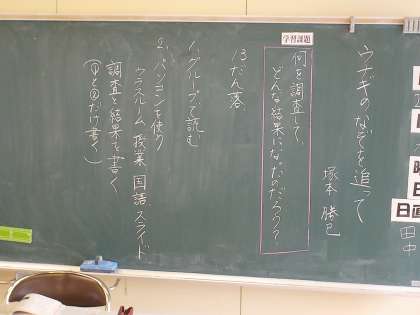 ウナギのなぞを追って
塚本 勝巳
学習課題
何を調査して、
どんな結果になったのだろう?
13だん落
1、グループで読む
2、パソコンを使う
クラスルーム 授業 国語 スライド
調査と結果を書く
(①と②だけ書く)
日直
田中